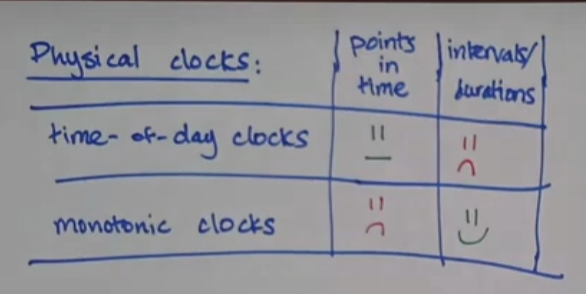 Physical clocks:
points
in
time
intervals/
durations
time-of-day clocks
monotonic clocks